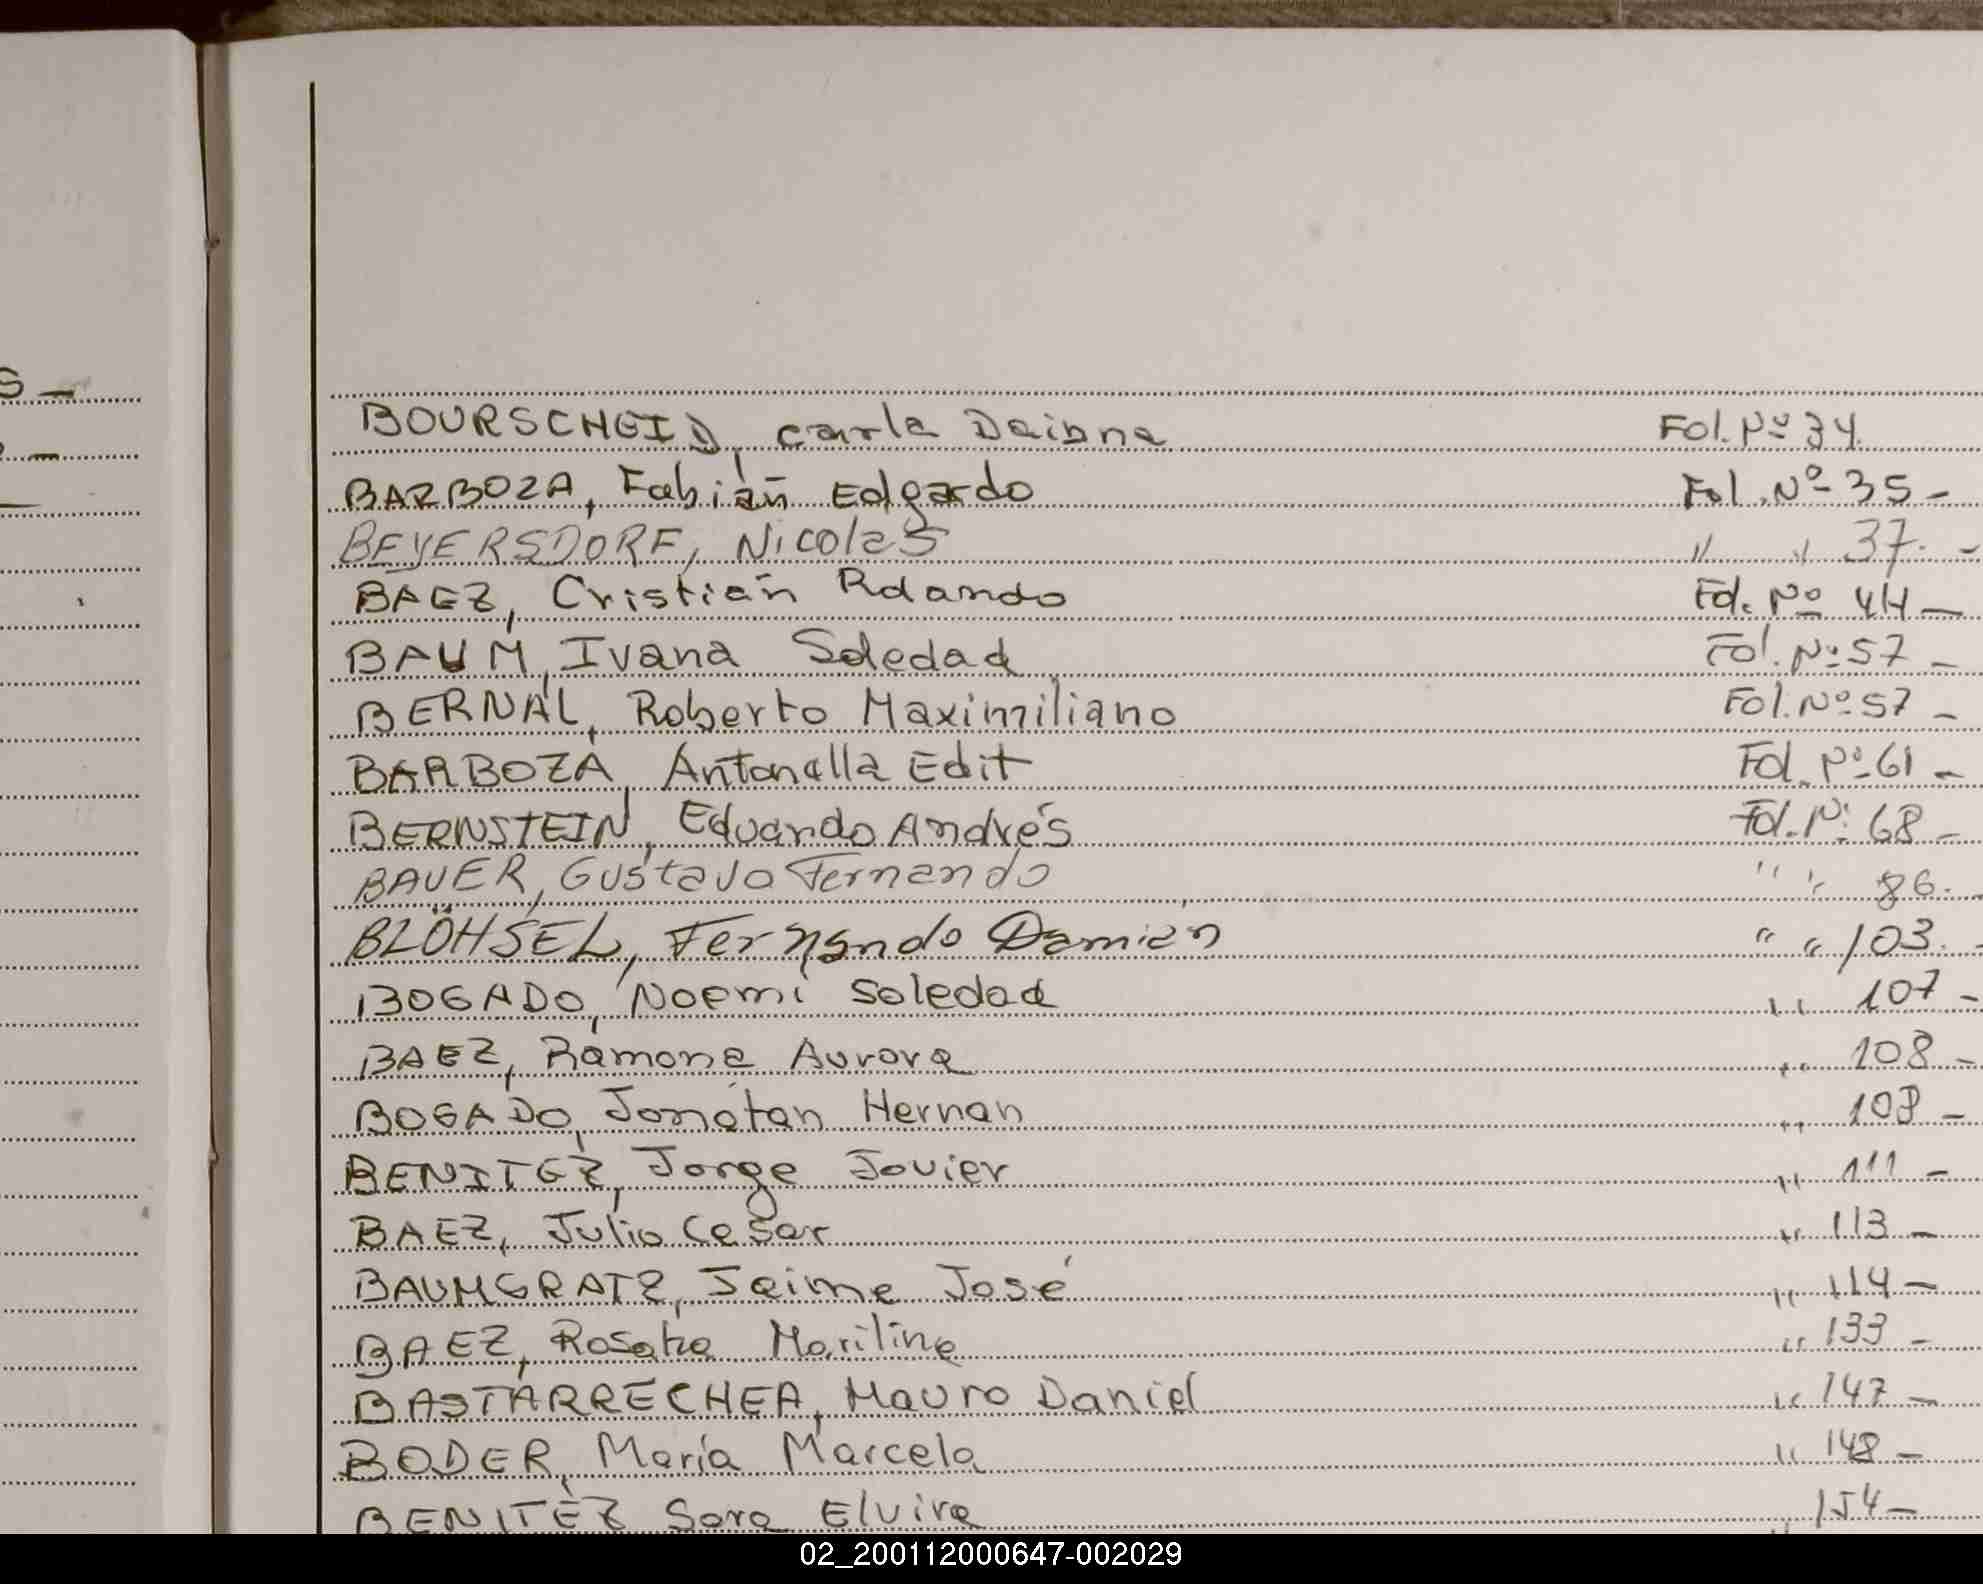 BOURSCHEID, Carla Daiana Fol. Nº 34.
BARBOZA, Fabián Edgardo Fol. Nº 35 -
BEYERSDORF, Nicolas " " 37. -
BAEZ, Cristián Rolando Fol. Nº 44 -
BAUM, Ivana Soledad Fol. Nº 57 -
BERNAL, Roberto Maximiliano Fol. Nº 57 -
BARBOZA, Antonella Edit Fol. Nº 61 -
BERNSTEIN, Eduardo Andrés Fol. Nº 68 -
BAUER, Gustavo Fernando " " 86.
BLÖHSEL, Fernando Damian " " 103. -
BOGADO, Noemí Soledad " 107 -
BAEZ, Ramona Aurora " 108 -
BOGADO, Jonatan Hernan " 108 -
BENITEZ, Jorge Javier " 111 -
BAEZ, Julio Cesar " 113 -
BAUMGRATZ, Jaime José " 114 -
BAEZ, Mariline " 133 -
BASTARRECHEA, Mauro Daniel " 147 -
BODER, María Marcela " 148 -
BENITEZ Sara Elvira " 154 -
02_200112000647-002029